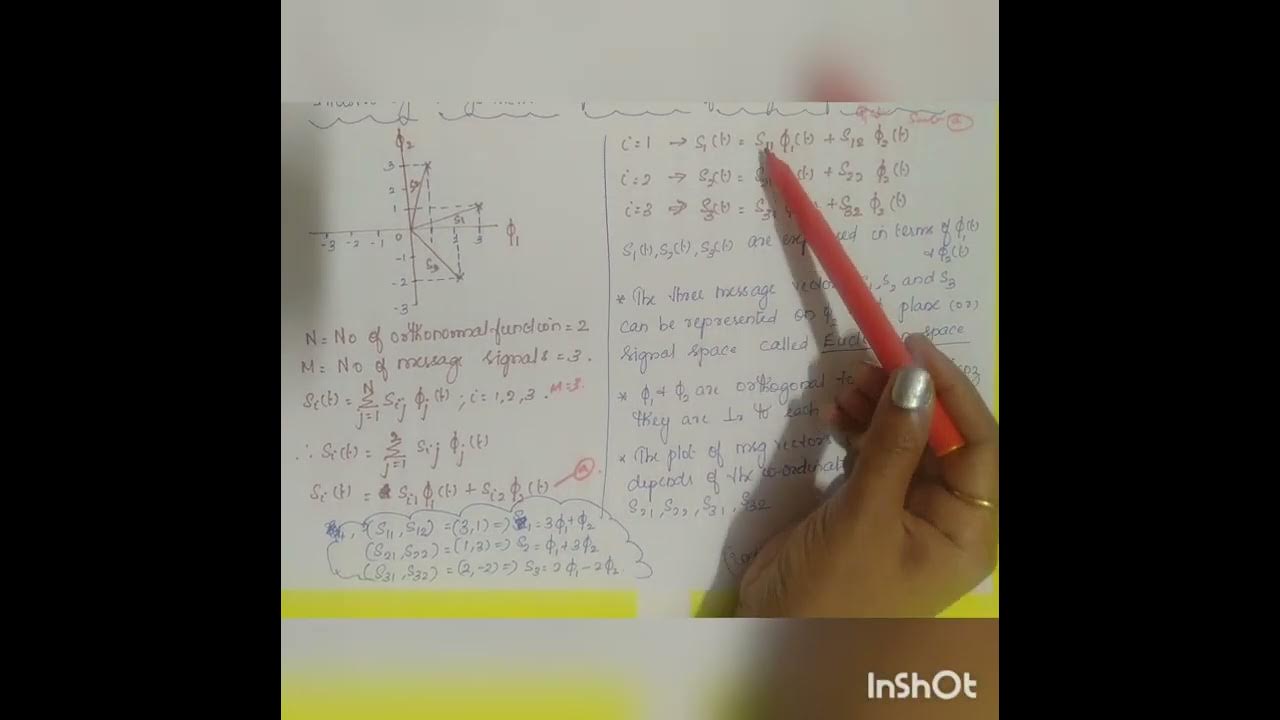 ϕ2
3
2
1
S2
S1
-3 -2 -1 0 2 3 ϕ1
-1
-2
-3
S3
N = No of orthonormal function = 2
M = No of message signals = 3.
Si(t) = N Σ j=1 Sij ϕj(t) ; i = 1, 2, 3. M=3.
∴ Si(t) = 2 Σ j=1 Sij ϕj(t)
Si(t) = Si1 ϕ1(t) + Si2 ϕ2(t) — a
(S11, S12) = (3,1) => S1 = 3ϕ1 + ϕ2
(S21, S22) = (1,3) => S2 = ϕ1 + 3ϕ2
(S31, S32) = (2,-2) => S3 = 2ϕ1 - 2ϕ2.
a
i=1 → S1(t) = S11 ϕ1(t) + S12 ϕ2(t)
i=2 → S2(t) = S21 (t) + S22 ϕ2(t)
i=3 → S3(t) = S31 + S32 ϕ2(t)
S1(t), S2(t), S3(t) are in terms of ϕ1(t)
& ϕ2(t)
* The three message S2 and S3
can be represented on ϕ2 plane (or)
signal space called space
* ϕ1 & ϕ2 are orthogonal to
they are ⊥r to each
* The plot of msg vectors
depends of the
S21, S22, S31, S32
InShOt